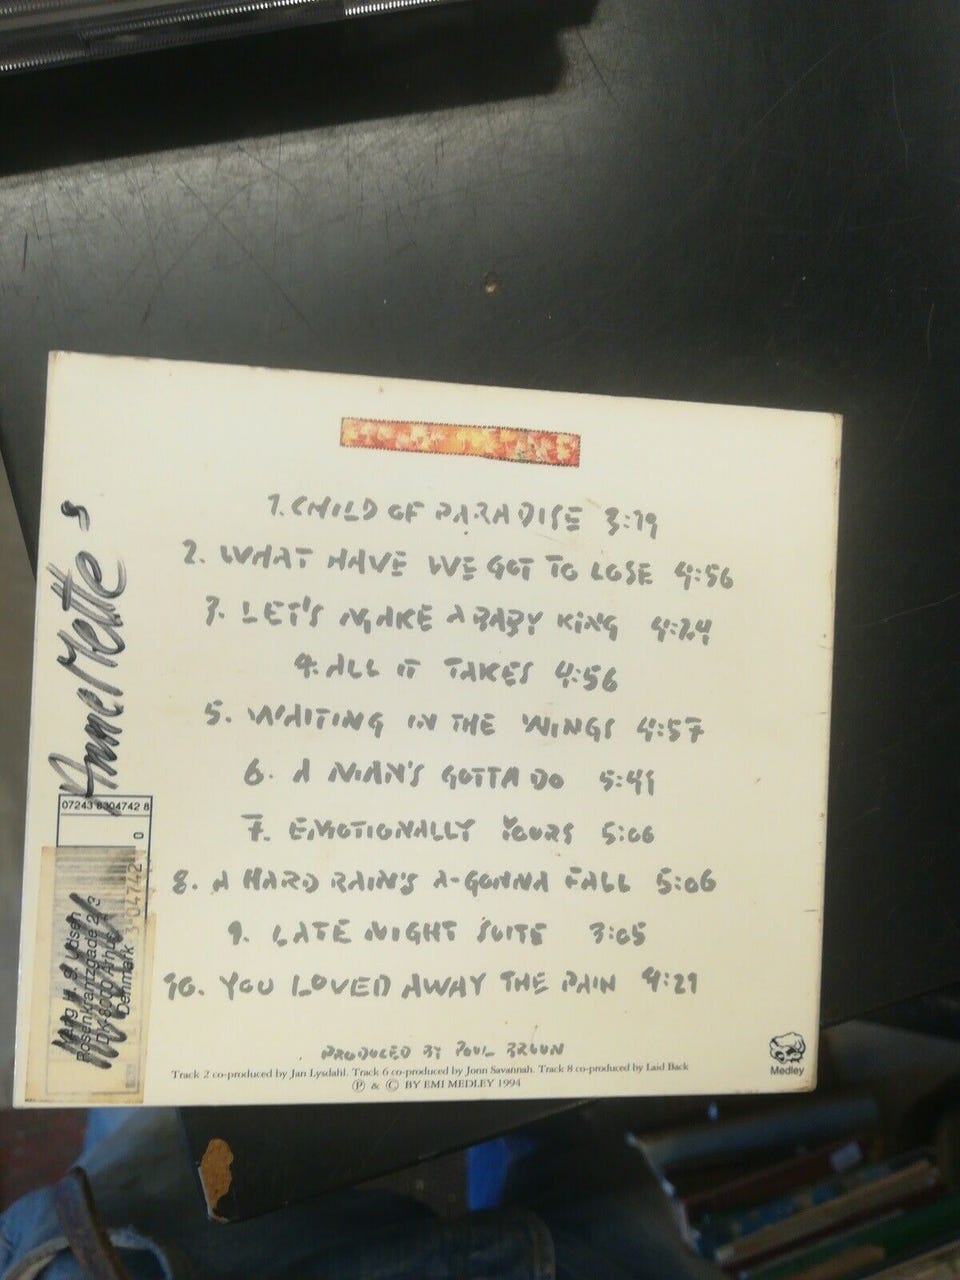 1. CHILD OF PARADISE 3:19
2. WHAT HAVE WE GOT TO LOSE 4:56
3. LET'S MAKE A BABY KING 4:24
4. ALL IT TAKES 4:56
5. WAITING IN THE WINGS 4:57
6. A MAN'S GOTTA DO 5:41
7. EMOTIONALLY YOURS 5:06
8. A HARD RAIN'S A-GONNA FALL 5:06
9. LATE NIGHT SUITE 3:05
10. YOU LOVED AWAY THE PAIN 4:21
PRODUCED BY POUL BRUUN
Track 2 co-produced by Jan Lysdahl. Track 6 co-produced by Jonn Savannah. Track 8 co-produced by Laid Back
Ⓟ & © BY EMI MEDLEY 1994
Medley
AnneMette S
07243 8304742 8
0
Rosenkrantzgade 23
Denmark